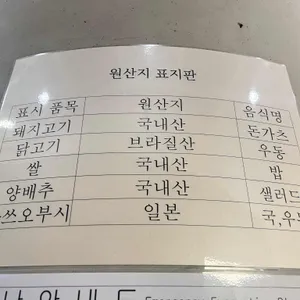 원산지 표지판
표시 품목 원산지 음식명
돼지고기 국내산 돈가츠
닭고기 브라질산 우동
쌀 국내산 밥
양배추 국내산 샐러드
쓰오부시 일본 국,우